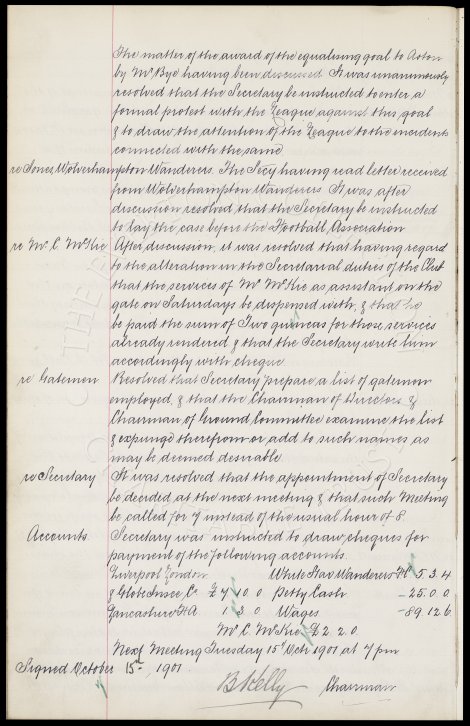 The matter of the award of the equalising goal to Aston
by Mr Bye having been discussed. It was unanimously
resolved that the Secretary be instructed to enter a
formal protest with the League against this goal
& to draw the attention of the League to the incidents
connected with the same.
re Jones, Wolverhampton Wanderers. The Secy having read letter received
from Wolverhampton Wanderers It was after
discussion resolved that the Secretary be instructed
to lay the case before the Football Association
re Mr C. McKie. After discussion, it was resolved that having regard
to the alteration in the Secretarial duties of the Club
that the services of Mr McKie as assistant on the
gate on Saturdays be dispensed with, & that he
be paid the sum of Two guineas for those services
already rendered & that the Secretary write him
accordingly with cheque
re Gatemen Resolved that Secretary prepare a list of gatemen
employed, & that the Chairman of Directors &
Chairman of Ground Committee examine the list
& expunge therefrom or add to such names as
may be deemed desirable
re Secretary It was resolved that the appointment of Secretary
be decided at the next meeting & that such Meeting
be called for 7 instead of the usual hour of 8.
Accounts. Secretary was instructed to draw cheques for
payment of the following accounts.
Liverpool London White Star Wanderers FC 5. 3. 4
& Globe Insce Co £7. 10. 0 Petty Cash - 25. 0. 0
Lancashire FA 1. 3. 0 Wages - 89. 12. 6
Mr C. McKie £2. 2. 0
Next Meeting Tuesday 15th Octr 1901 at 7 pm
Signed October 15th, 1901
B Kelly Chairman